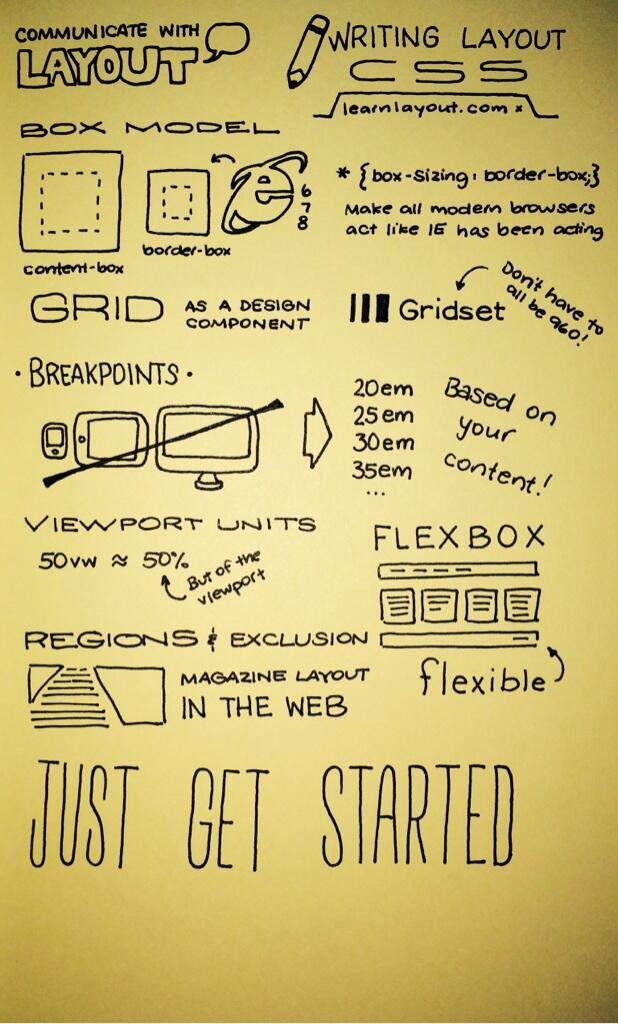 COMMUNICATE WITH
LAYOUT
WRITING LAYOUT
CSS
learnlayout.com x
BOX MODEL
content-box
border-box
e
6
7
8
* {box-sizing: border-box;}
Make all modern browsers
act like IE has been acting
GRID
AS A DESIGN
COMPONENT
Gridset
Don't have to
all be 960!
• BREAKPOINTS •
20em
25em
30em
35em
...
Based on
your
content!
VIEWPORT UNITS
50vw ≈ 50%
But of the
viewport
FLEXBOX
flexible
REGIONS & EXCLUSION
MAGAZINE LAYOUT
IN THE WEB
JUST GET STARTED